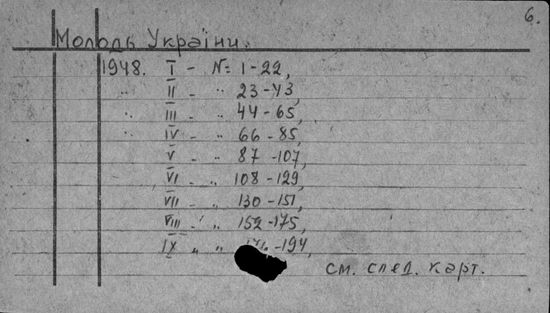 6.
Молодь України.
1948. I - №= 1-22,
" II - " 23-43,
III - " 44-65,
" IV - " 66-85,
V - " 87-107,
VI - " 108-129,
VII - " 130-151,
VIII - " 152-175,
IX " " -194,
см. след. карт.